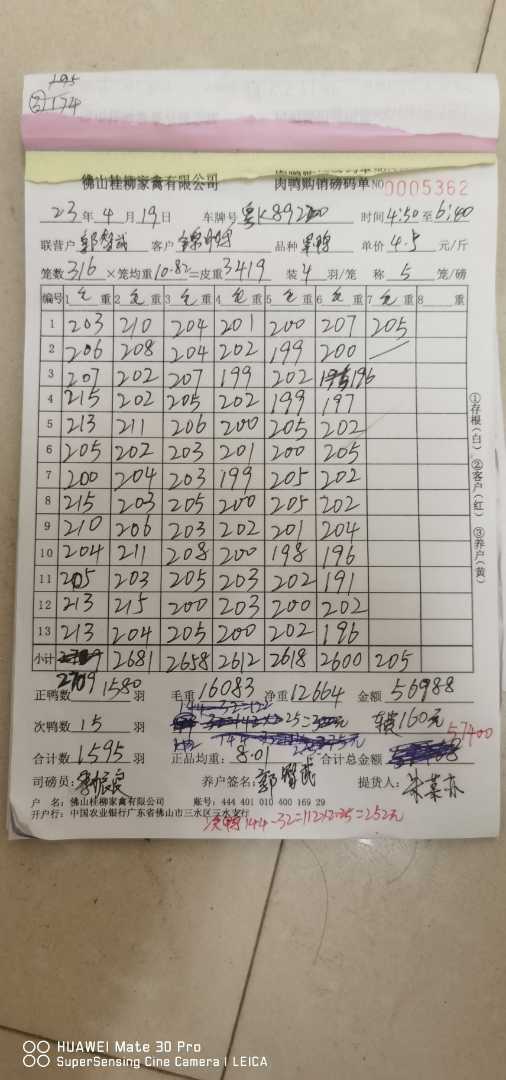 195
174
佛山桂柳家禽有限公司
肉鸭购销磅码单 NO 0005362
23年 4月 19日 车牌号 粤K89200 时间 4:50 至 6:40
联营户 郭智武 客户 品种 单价 4.5 元/斤
笼数 316 ×笼均重 10.82 =皮重 3419 装 4 羽/笼 称 5 笼/磅
编号 1 毛 重 2 毛 重 3 毛 重 4 毛 重 5 毛 重 6 毛 重 7 毛 重 8 重
1 203 210 204 201 200 207 205
2 206 208 204 202 199 200
3 207 202 207 199 202 196
4 215 202 205 202 199 197
5 213 211 206 200 205 202
6 205 202 203 201 200 205
7 200 204 203 199 205 202
8 215 203 205 200 205 202
9 210 206 203 202 201 204
10 204 211 208 200 198 196
11 205 203 205 203 202 191
12 213 215 200 203 200 202
13 213 204 205 200 202 196
小计 2681 2658 2612 2618 2600 205
2709
正鸭数 1580 羽 毛重 16083 净重 12664 金额 56988
次鸭数 15 羽 160元
57400
合计数 1595 羽 正品均重: 8.01 合计总金额
司磅员: 养户签名: 郭智武 提货人:
户 名: 佛山桂柳家禽有限公司 账号: 444 401 010 400 169 29
开户行: 中国农业银行广东省佛山市三水区三水支行
次鸭 144-32=112×2.25=252元
①存根(白) ②客户(红) ③养户(黄)
HUAWEI Mate 30 Pro
SuperSensing Cine Camera | LEICA